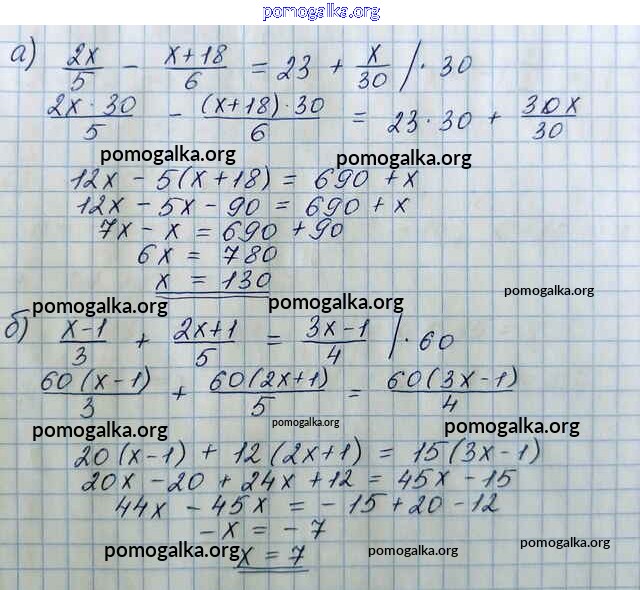 pomogalka.org
а) 2x/5 - (x+18)/6 = 23 + x/30 /· 30
2x·30/5 - (x+18)·30/6 = 23·30 + 30x/30
pomogalka.org pomogalka.org
12x - 5(x+18) = 690 + x
12x - 5x - 90 = 690 + x
7x - x = 690 + 90
6x = 780
x = 130
pomogalka.org
pomogalka.org pomogalka.org
б) (x-1)/3 + (2x+1)/5 = (3x-1)/4 /· 60
60(x-1)/3 + 60(2x+1)/5 = 60(3x-1)/4
pomogalka.org pomogalka.org pomogalka.org
20(x-1) + 12(2x+1) = 15(3x-1)
20x - 20 + 24x + 12 = 45x - 15
44x - 45x = -15 + 20 - 12
-x = -7
pomogalka.org pomogalka.org pomogalka.org
x = 7